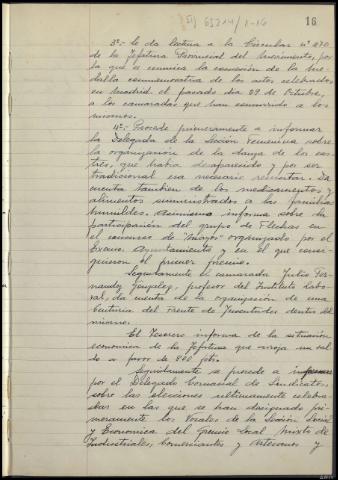 16
3º.- Se da lectura a la Circular nº 270
de la Jefatura Provincial del Movimiento, por
la que se comunica la concesión de la me-
dalla conmemorativa de los actos celebrados
en Madrid el pasado día 29 de Octubre,
a los camaradas que han concurrido a los
mismos.
4º.- Procede primeramente a informar
la Delegada de la Sección Femenina sobre
la organización de la danza de los cas-
tros, que había desaparecido y por ser
tradicional era necesario resucitar. Da
cuenta tambien de los medicamentos y
alimentos suministrados a las familias
humildes. Asimismo informa sobre la
participación del grupo de Flechas en
el concurso de "Mayos" organizado por el
Excmo. Ayuntamiento y en el que consi-
guieron el primer premio.
Seguidamente el camarada Julio Fer-
nandez Gonzalez, profesor del Instituto Labo-
ral, da cuenta de la organización de una
Centuria del Frente de Juventudes dentro del
mismo.
El Tesorero informa de la situación
economica de la Jefatura que arroja un sal-
do a favor de 800 pts.
Seguidamente se procede a informar
por el Delegado Comarcal de Sindicatos,
sobre las elecciones ultimamente celebra-
das en las que se han designado pri-
meramente los Vocales de la Sección Social
y Economica del Gremio Local Mixto de
Industriales, Comerciantes y Artesanos y